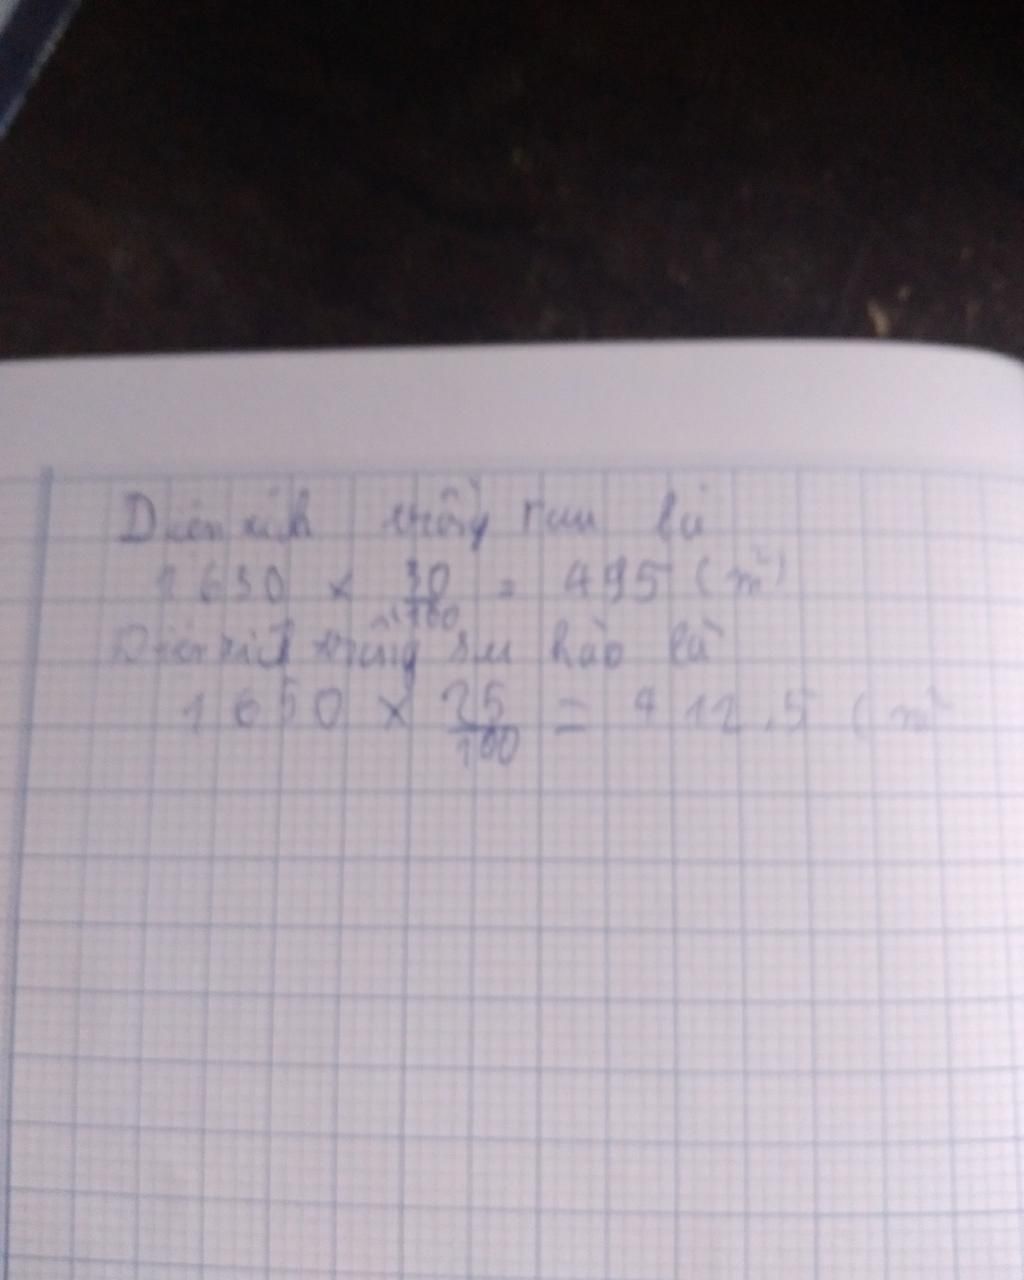 Diện tích trồng rau là
1650 × 30/100 = 495 (m²)
Diện tích trồng su hào là
1650 × 25/100 = 412,5 (m²